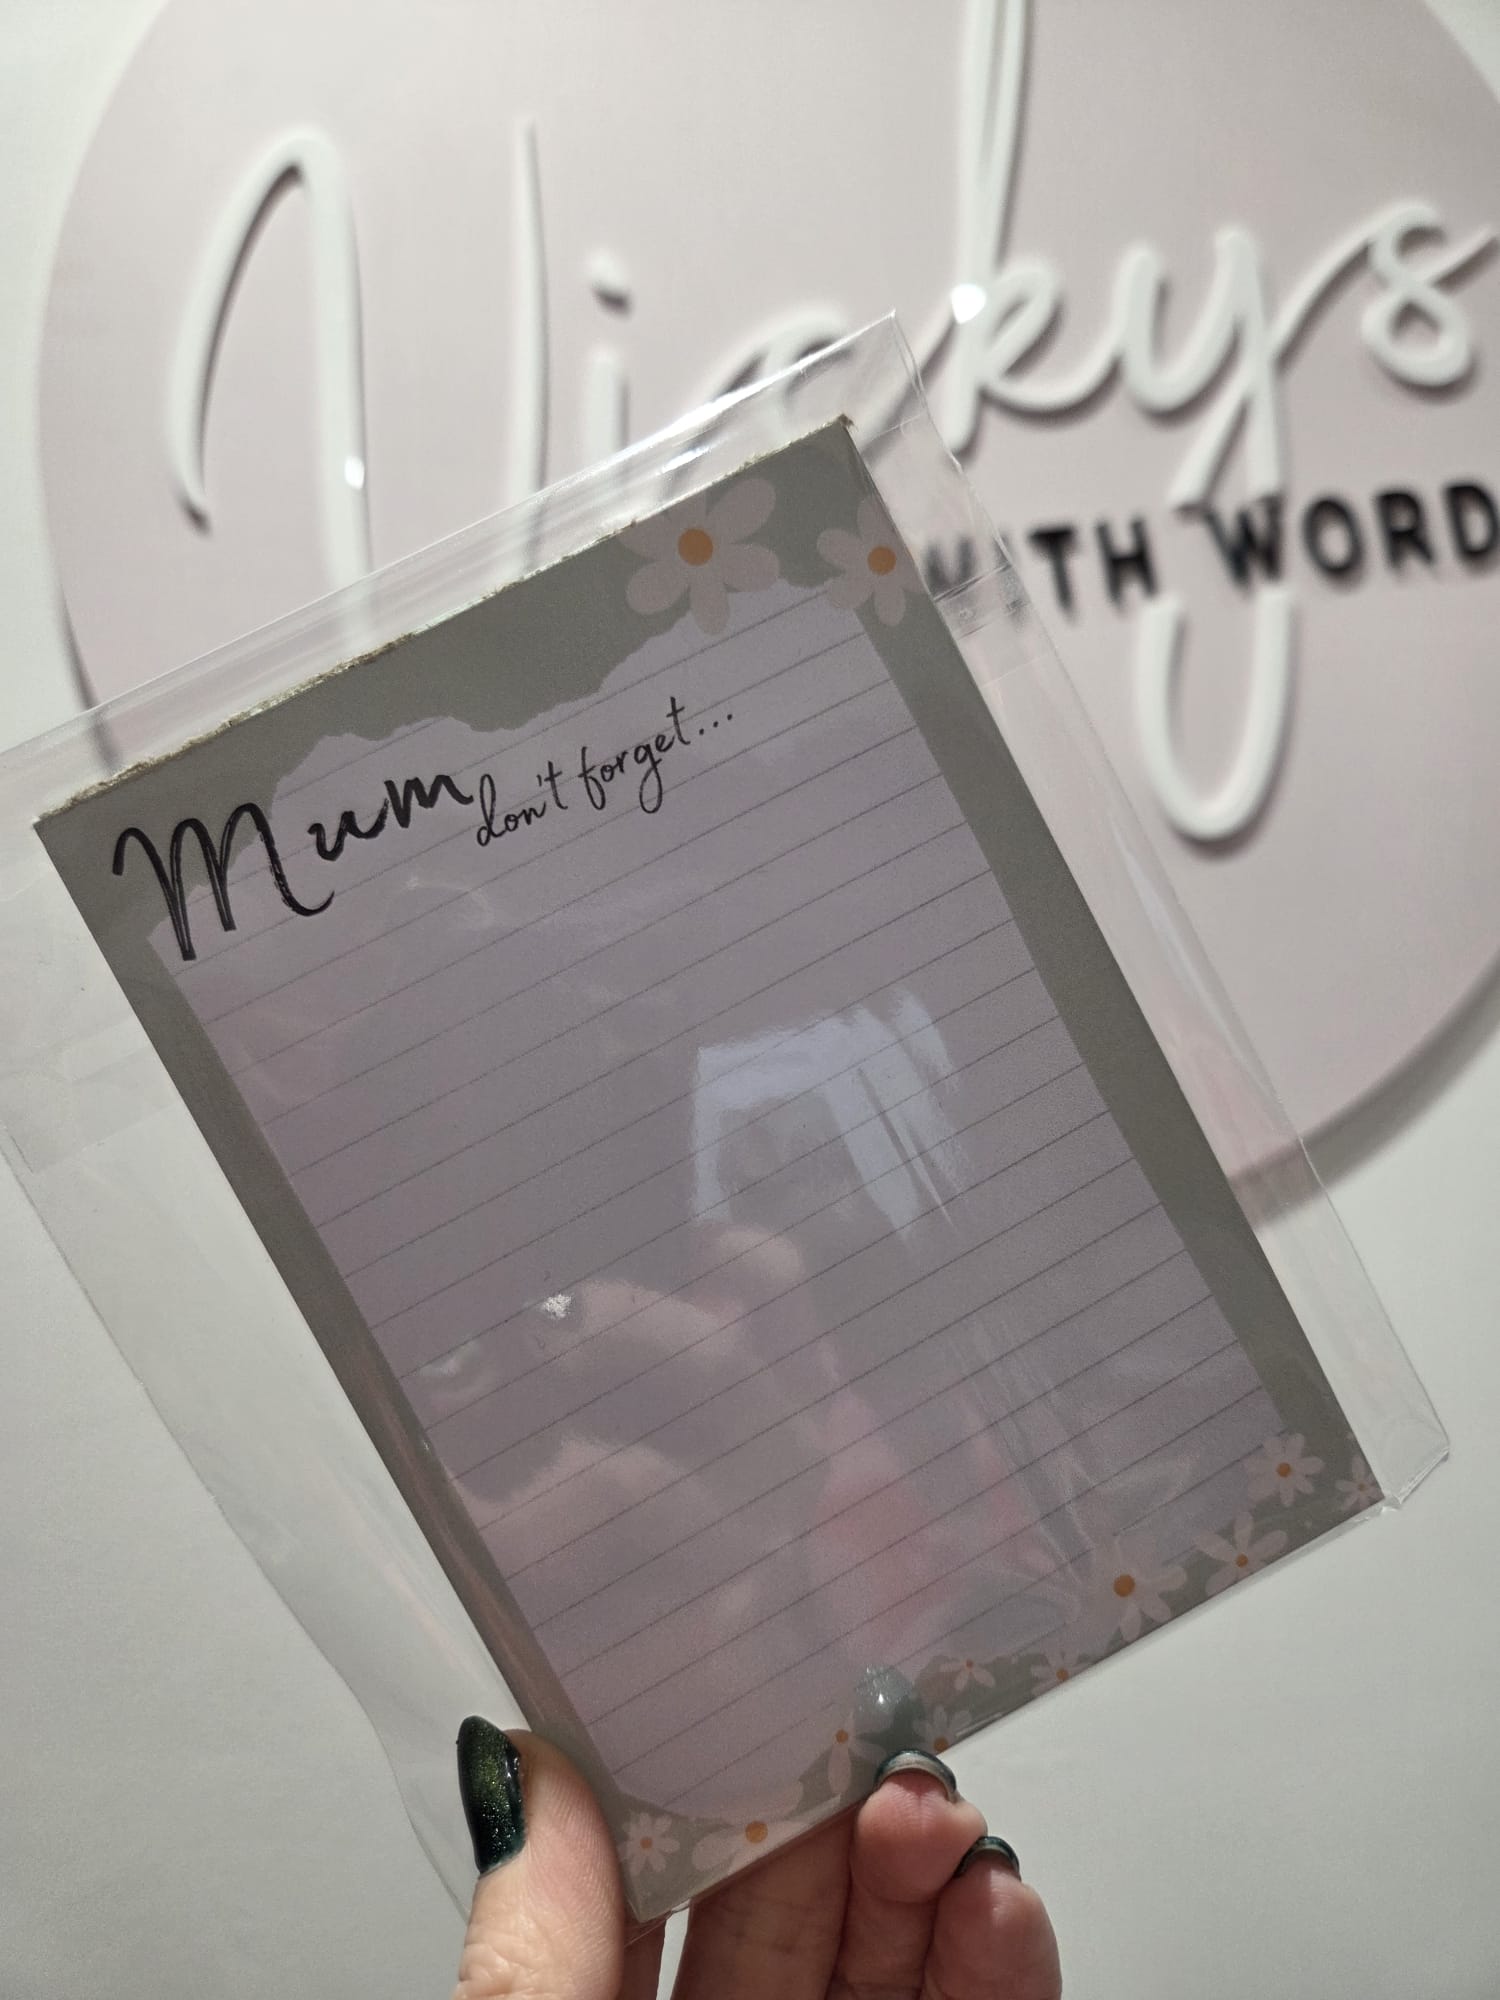 Nickys
WITH WORD
Mum don't forget...